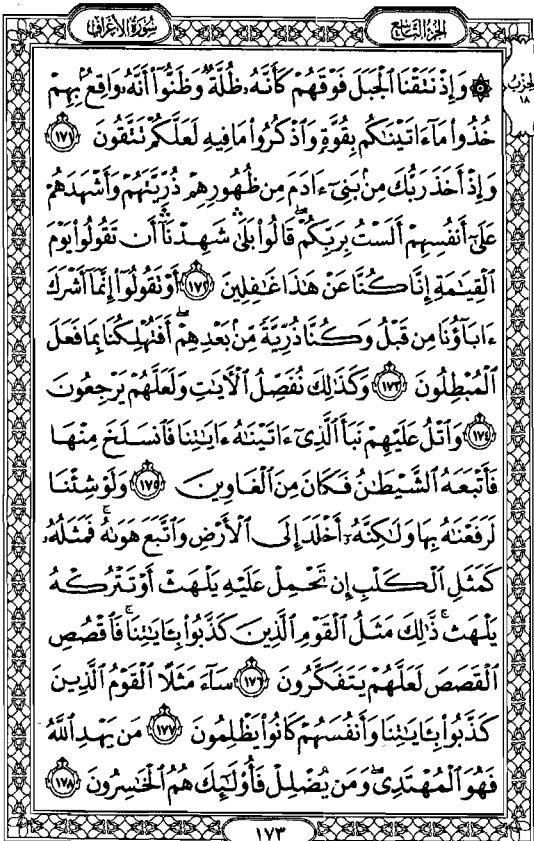 سورة الأعراف
الجزء التاسع
الحزب
١٨
۞ وَإِذْ نَتَقْنَا الْجَبَلَ فَوْقَهُمْ كَأَنَّهُ ظُلَّةٌ وَظَنُّوا أَنَّهُ وَاقِعٌ بِهِمْ
خُذُوا مَا ءَاتَيْنَٰكُم بِقُوَّةٍ وَاذْكُرُوا مَا فِيهِ لَعَلَّكُمْ تَتَّقُونَ ١٧١
وَإِذْ أَخَذَ رَبُّكَ مِنۢ بَنِىٓ ءَادَمَ مِن ظُهُورِهِمْ ذُرِّيَّتَهُمْ وَأَشْهَدَهُمْ
عَلَىٰٓ أَنفُسِهِمْ أَلَسْتُ بِرَبِّكُمْ ۖ قَالُوا بَلَىٰ ۛ شَهِدْنَآ ۛ أَن تَقُولُوا يَوْمَ
الْقِيَٰمَةِ إِنَّا كُنَّا عَنْ هَٰذَا غَٰفِلِينَ ١٧٢ أَوْ تَقُولُوٓا إِنَّمَآ أَشْرَكَ
ءَابَآؤُنَا مِن قَبْلُ وَكُنَّا ذُرِّيَّةً مِّنۢ بَعْدِهِمْ ۖ أَفَتُهْلِكُنَا بِمَا فَعَلَ
الْمُبْطِلُونَ ١٧٣ وَكَذَٰلِكَ نُفَصِّلُ الْءَايَٰتِ وَلَعَلَّهُمْ يَرْجِعُونَ
١٧٤ وَاتْلُ عَلَيْهِمْ نَبَأَ الَّذِىٓ ءَاتَيْنَٰهُ ءَايَٰتِنَا فَانسَلَخَ مِنْهَا
فَأَتْبَعَهُ الشَّيْطَٰنُ فَكَانَ مِنَ الْغَاوِينَ ١٧٥ وَلَوْ شِئْنَا
لَرَفَعْنَٰهُ بِهَا وَلَٰكِنَّهُۥٓ أَخْلَدَ إِلَى الْأَرْضِ وَاتَّبَعَ هَوَىٰهُ ۚ فَمَثَلُهُۥ
كَمَثَلِ الْكَلْبِ إِن تَحْمِلْ عَلَيْهِ يَلْهَثْ أَوْ تَتْرُكْهُ
يَلْهَث ۚ ذَّٰلِكَ مَثَلُ الْقَوْمِ الَّذِينَ كَذَّبُوا بِـَٔايَٰتِنَا ۚ فَاقْصُصِ
الْقَصَصَ لَعَلَّهُمْ يَتَفَكَّرُونَ ١٧٦ سَآءَ مَثَلًا الْقَوْمُ الَّذِينَ
كَذَّبُوا بِـَٔايَٰتِنَا وَأَنفُسَهُمْ كَانُوا يَظْلِمُونَ ١٧٧ مَن يَهْدِ اللَّهُ
فَهُوَ الْمُهْتَدِى ۖ وَمَن يُضْلِلْ فَأُولَٰٓئِكَ هُمُ الْخَٰسِرُونَ ١٧٨
١٧٣